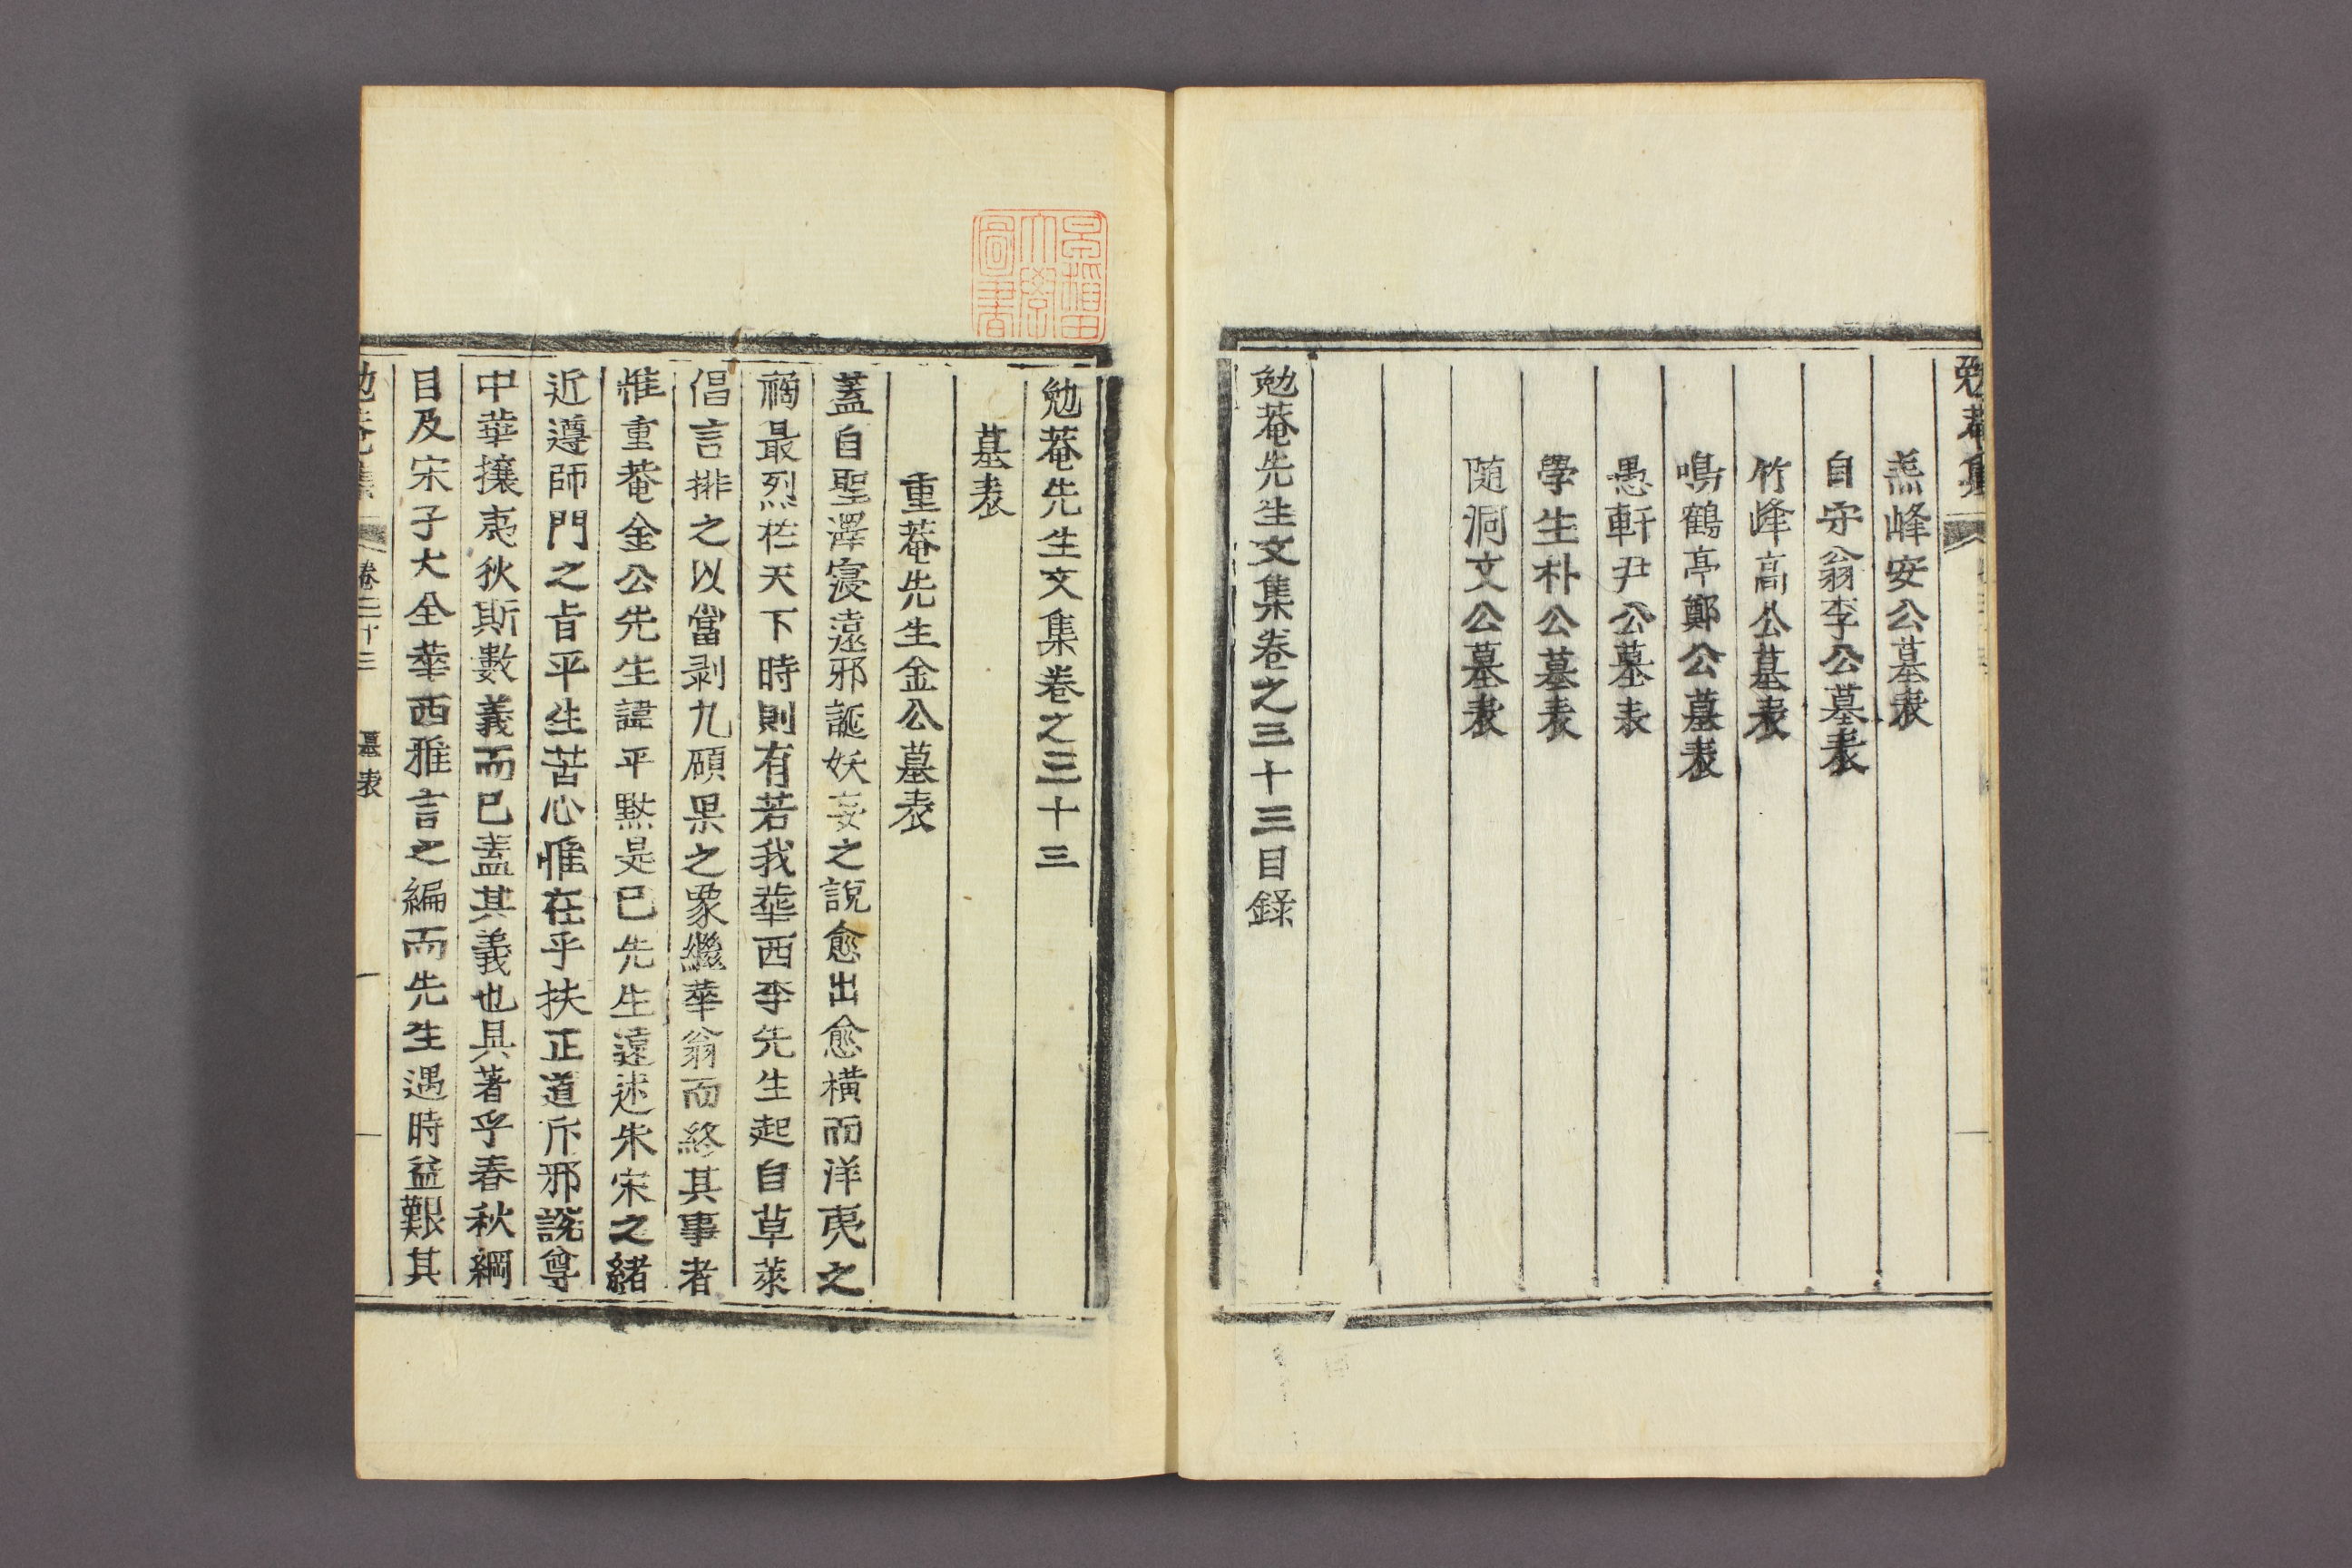 勉菴集
燾峰安公墓表
自守翁李公墓表
竹峰高公墓表
鳴鶴亭鄭公墓表
愚軒尹公墓表
學生朴公墓表
随洞文公墓表
勉菴先生文集卷之三十三目錄
早稻田大學圖書
勉菴先生文集卷之三十三
墓表
重菴先生金公墓表
蓋自聖澤寖遠邪誕妖妄之說愈出愈橫而洋夷之
禍最烈於天下時則有若我華西李先生起自草萊
倡言排之以當剥九碩果之象繼華翁而終其事者
惟重菴金公先生諱平黙是已先生遠述朱宋之緖
近遵師門之旨平生苦心惟在乎扶正道斥邪說尊
中華攘夷狄斯數義而已盖其義也具著乎春秋綱
目及宋子大全華西雅言之編而先生遇時益艱其
勉菴集 卷三十三 墓表 一